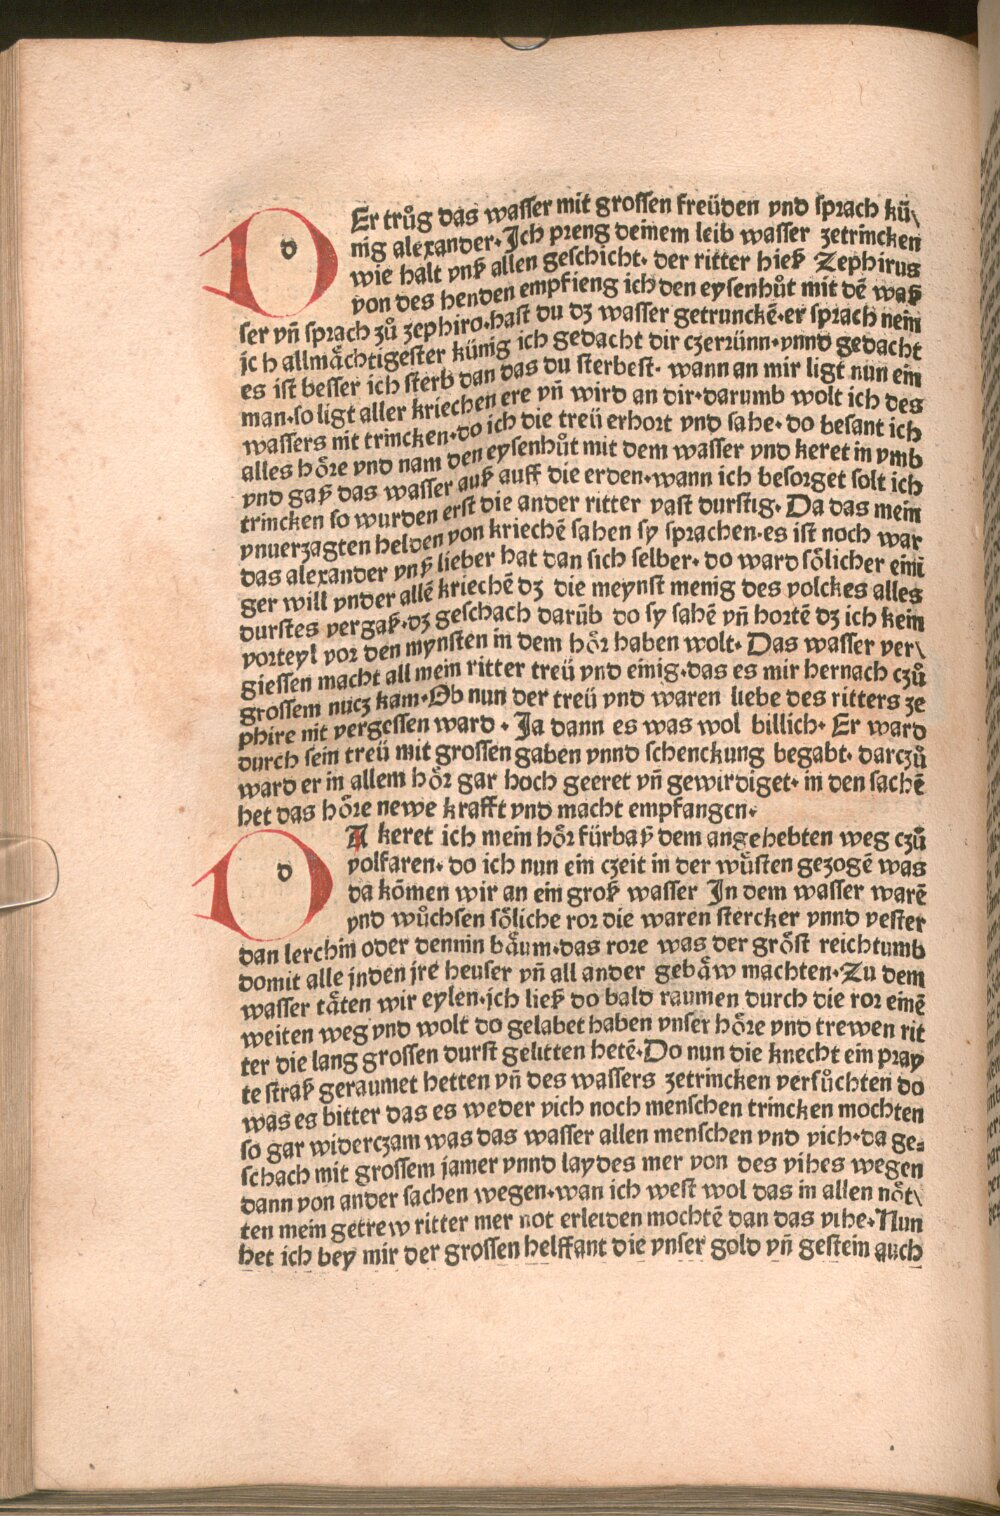 DEr trůg das wasser mit grossen freüden vnd sprach kü\
nig alexander. Ich preng deinem leib wasser zetrincken
wie halt vnß allen geschicht. der ritter hieß Zephirus
von des henden empfieng ich den eysenhůt mit dē waß
ser vn̄ sprach zů zephiro. hast du dz wasser getrunckē. er sprach nein
ich allmächtigester künig ich gedacht dir czerrünn. vnnd gedacht
es ist besser ich sterb dan das du sterbest. wann an mir ligt nun ein
man. so ligt aller kriechen ere vn̄ wird an dir. darumb wolt ich des
wassers nit trincken. do ich die treü erhort vnd sahe. do besant ich
alles höre vnd nam den eysenhůt mit dem wasser vnd keret in vmb
vnd gaß das wasser auß auff die erden. wann ich besorget solt ich
trincken so wurden erst die ander ritter vast durstig. Da das mein
vnuerzagten helden von kriechē sahen sy sprachen. es ist noch war
das alexander vnß lieber hat dan sich selber. do ward sölicher eini
ger will vnder allē kriechē dz die meynst menig des volckes alles
durstes vergaß. dz geschach darūb do sy sahē vn̄ hortē dz ich kein
vorteyl vor den mynsten in dem hör haben wolt. Das wasser ver\
giessen macht all mein ritter treü vnd einig. das es mir hernach czů
grossem nucz kam. Ob nun der treü vnd waren liebe des ritters ze
phire nit vergessen ward. Ja dann es was wol billich. Er ward
durch sein treü mit grossen gaben vnnd schenckung begabt. darczů
ward er in allem hör gar hoch geeret vn̄ gewirdiget. in den sachē
het das höre newe krafft vnd macht empfangen.
DA keret ich mein hör fürbaß dem angehebten weg czů
volfaren. do ich nun ein czeit in der wüsten gezogē was
da kōmen wir an ein groß wasser In dem wasser warē
vnd wůchsen söliche ror die waren stercker vnnd vester
dan lerchin oder dennin bäum. das rore was der gröst reichtumb
domit alle jnden jre heuser vn̄ all ander gebäw machten. Zu dem
wasser täten wir eylen. ich ließ do bald raumen durch die ror einē
weiten weg vnd wolt do gelabet haben vnser höre vnd trewen rit
ter die lang grossen durst gelitten hetē. Do nun die knecht ein pray
te straß geraumet hetten vn̄ des wassers zetrincken versůchten do
was es bitter das es weder vich noch menschen trincken mochten
so gar widerczam was das wasser allen menschen vnd vich. da ge⸗
schach mit grossem jamer vnnd laydes mer von des vihes wegen
dann von ander sachen wegen. wan ich west wol das in allen nöt\
ten mein getrew ritter mer not erleiden mochtē dan das vihe. Nun
het ich bey mir der grossen helffant die vnser gold vn̄ gestein auch